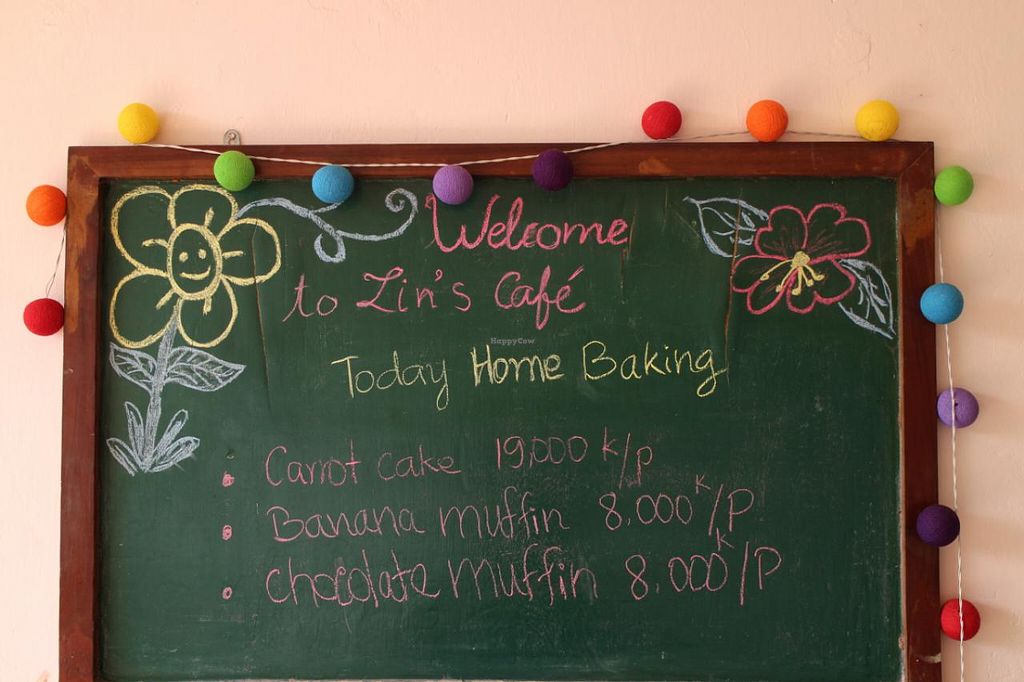 Welcome
to Lin's Café
HappyCow
Today Home Baking
Carrot cake 19,000 k/p
Banana muffin 8.000 K/P
chocolate muffin 8.000 K/P